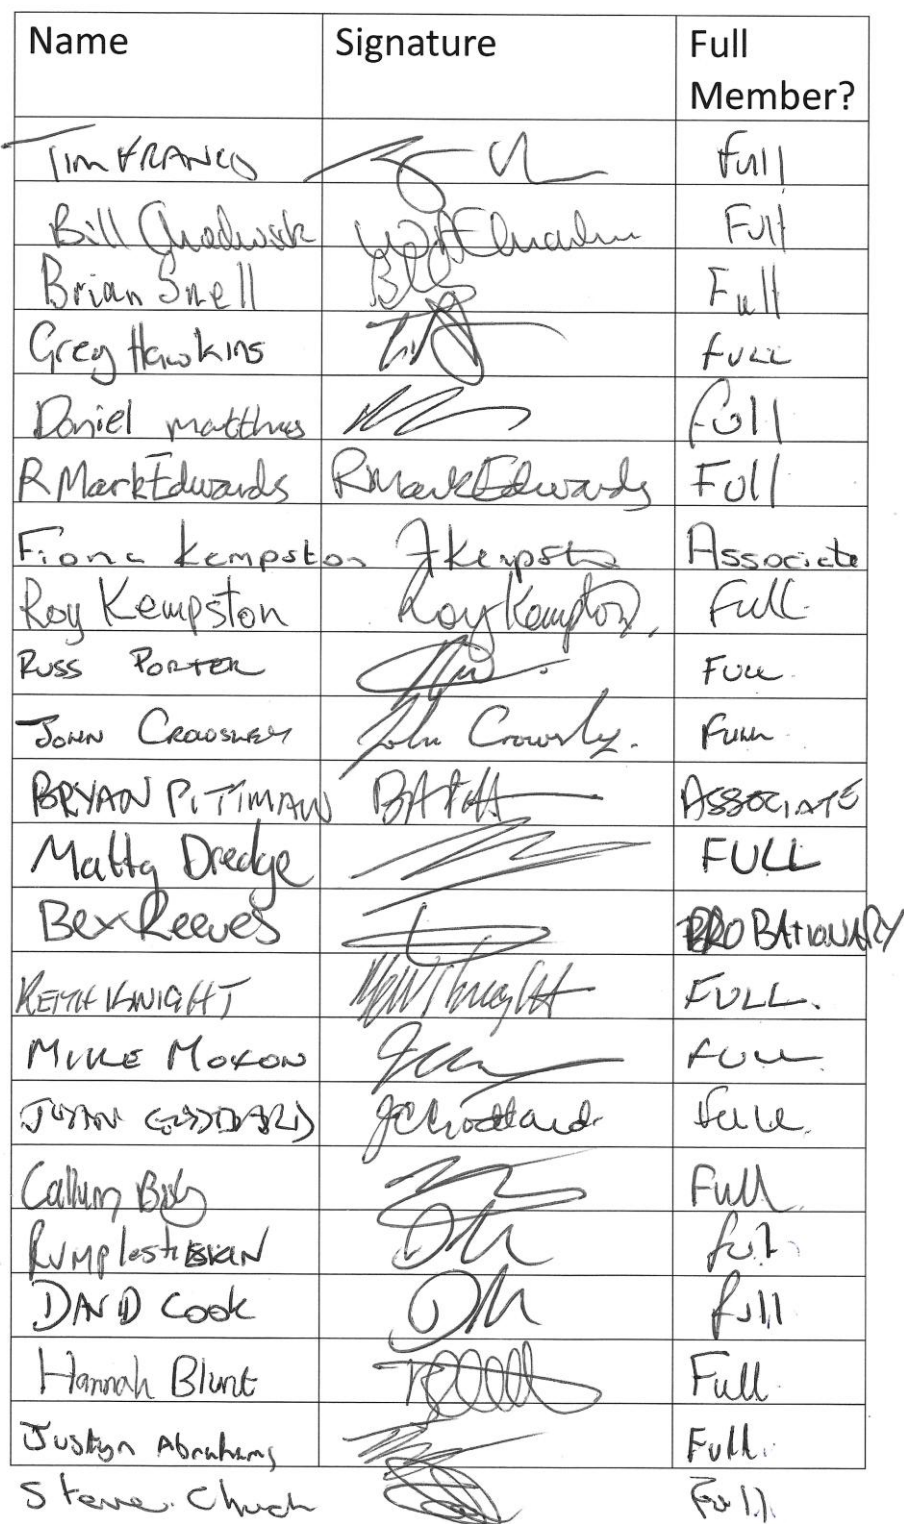 Name Signature Full Member?
Tim FRANCIS Full
Bill Chadwick Full
Brian Snell Full
Greg Hawkins FULL
Daniel matthews Full
R Mark Edwards R Mark Edwards Full
Fiona Kempston F Kempston Associate
Roy Kempston Roy Kempston Full
RUSS PORTER FULL
JOHN CROWSLEY John Crowsley. FULL
BRYAN PITTMAN ASSOCIATE
Matty Dredge FULL
Bex Reeves PROBATIONARY
KEITH KNIGHT FULL.
MIKE MOXON FULL
GODDARD JC Goddard Full
Callum Full
RUMPlestiltSKIN full
DAVID Cook full
Hannah Blunt Full
Justyn Abrahams Full.
Steve Church Full